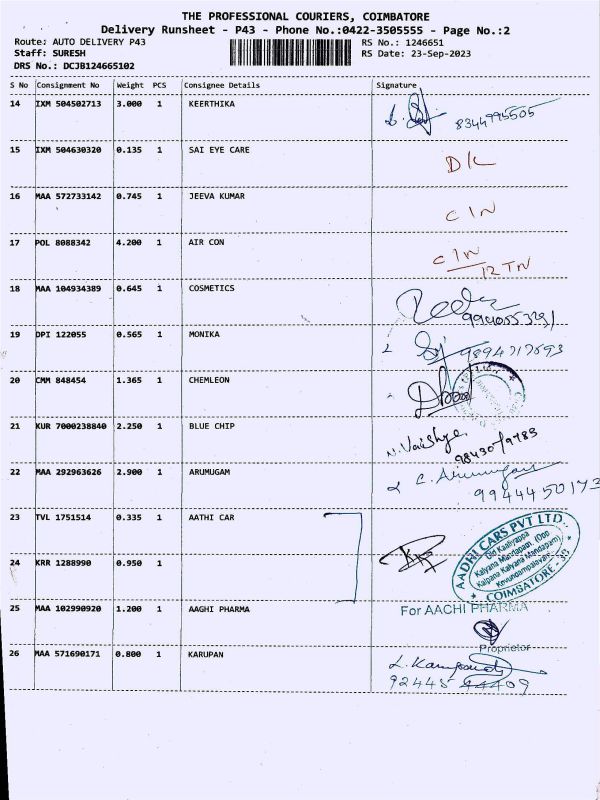 THE PROFESSIONAL COURIERS, COIMBATORE
Delivery Runsheet - P43 - Phone No.:0422-3505555 - Page No.:2
Route: AUTO DELIVERY P43 RS No.: 1246651
Staff: SURESH RS Date: 23-Sep-2023
DRS No.: DCJB124665102
S No Consignment No Weight PCS Consignee Details Signature
14 IXM 504502713 3.000 1 KEERTHIKA
8344995505
15 IXM 504630320 0.135 1 SAI EYE CARE
DL
16 MAA 572733142 0.745 1 JEEVA KUMAR
CIN
17 POL 8088342 4.200 1 AIR CON
CIN
12 TN
18 MAA 104934389 0.645 1 COSMETICS
19 DPI 122055 0.565 1 MONIKA
9894717693
20 CMM 848454 1.365 1 CHEMLEON
21 KUR 7000238840 2.250 1 BLUE CHIP
N. Vaishya
9843019783
22 MAA 292963626 2.900 1 ARUMUGAM
C. Arumugam
9944450173
23 TVL 1751514 0.335 1 AATHI CAR
AADHI CARS PVT LTD.
Old Kaaliyappa
Kalyana Mandapam, (Opp
Kalpana Kalyana Mandapam)
Kevundampalayam
COIMBATORE - 30
24 KRR 1288990 0.950 1
25 MAA 102990920 1.200 1 AAGHI PHARMA
For AACHI PHARMA
Proprietor
26 MAA 571690171 0.800 1 KARUPAN
92445 44409